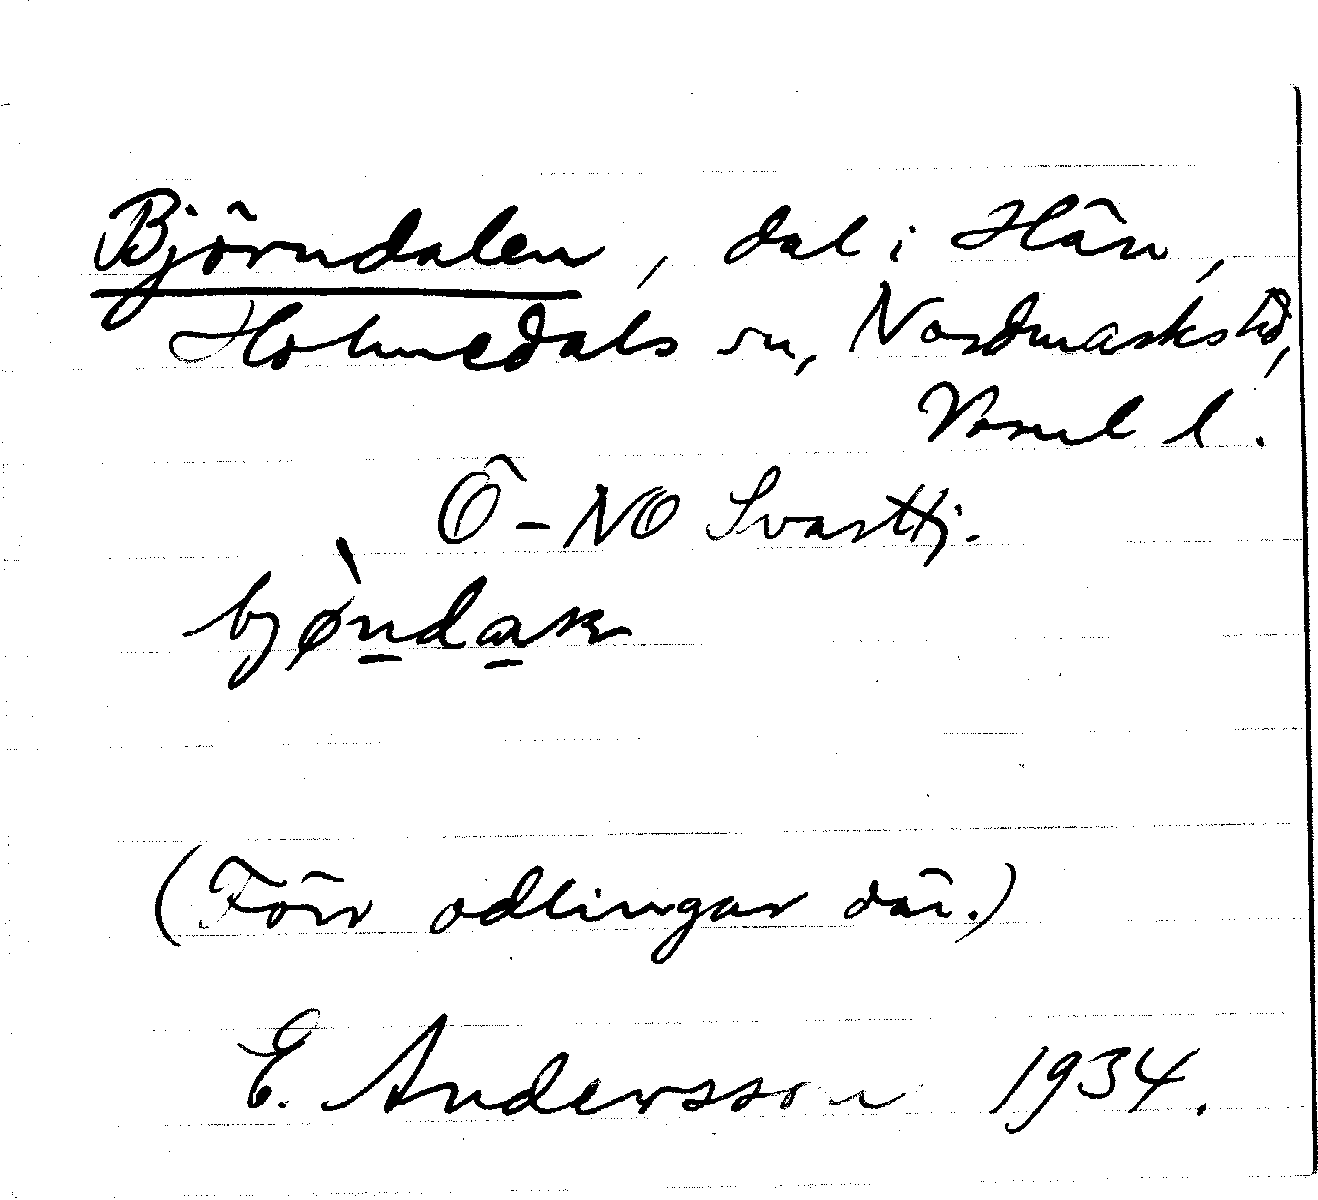 Björndalen, dal i Hän,
Holmedals sn, Nordmarks hd,
Värml l.
Ö-NO Svarttj.
bjø̀ndaɽn
(Förr odlingar där.)
E. Andersson 1934.